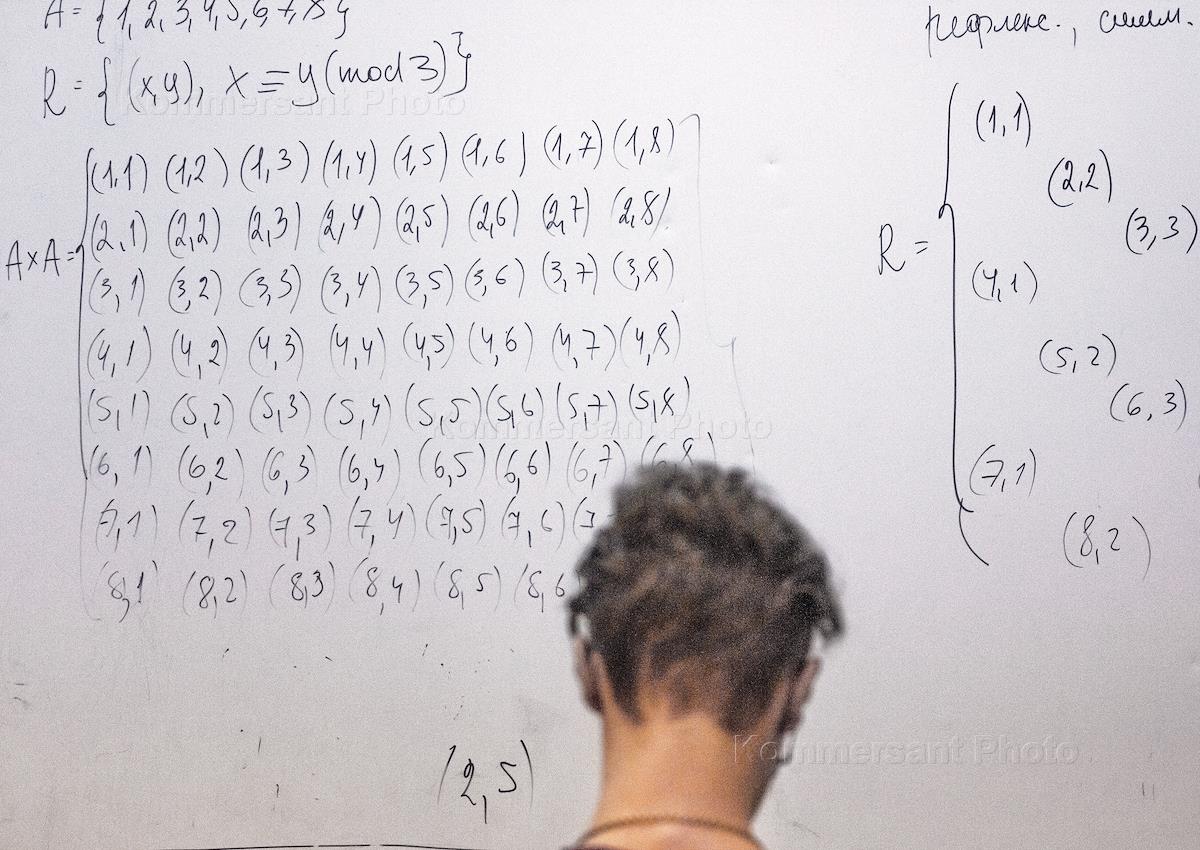 A = {1,2,3,4,5,6,7,8}
R = {(x,y), x ≡ y(mod 3)}
A×A = {(1,1) (1,2) (1,3) (1,4) (1,5) (1,6) (1,7) (1,8)
(2,1) (2,2) (2,3) (2,4) (2,5) (2,6) (2,7) (2,8)
(3,1) (3,2) (3,3) (3,4) (3,5) (3,6) (3,7) (3,8)
(4,1) (4,2) (4,3) (4,4) (4,5) (4,6) (4,7) (4,8)
(5,1) (5,2) (5,3) (5,4) (5,5) (5,6) (5,7) (5,8)
(6,1) (6,2) (6,3) (6,4) (6,5) (6,6) (6,7) (6,8)
(7,1) (7,2) (7,3) (7,4) (7,5) (7,6) (7,
(8,1) (8,2) (8,3) (8,4) (8,5) (8,6
(2,5)
рефлекс., симм.
R = {(1,1)
(2,2)
(3,3)
(4,1)
(5,2)
(6,3)
(7,1)
(8,2)
Kommersant Photo
Kommersant Photo
Kommersant Photo